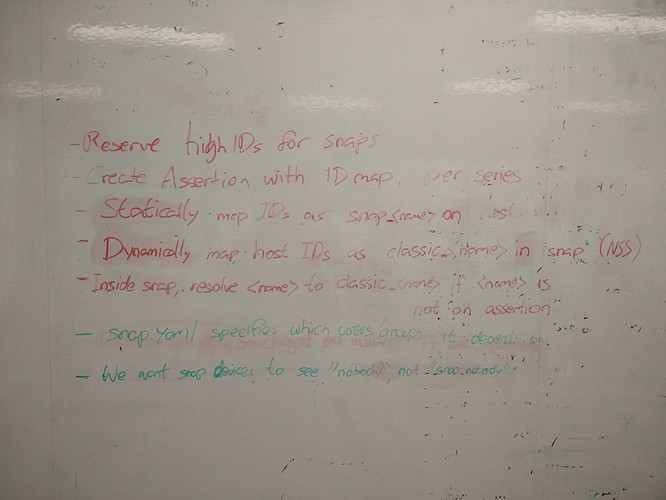 - Reserve high IDs for snaps
- Create Assertion with ID map, per series
- Statically map IDs as snap_<name> on host
- Dynamically map host IDs as classic_<name> in snap (NSS)
- Inside snap, resolve <name> to classic_<name> if <name> is
not on assertion
- snap.yaml specifies which users/groups it depends on
- We want snap devices to see "nobody", not "snap_nobody"